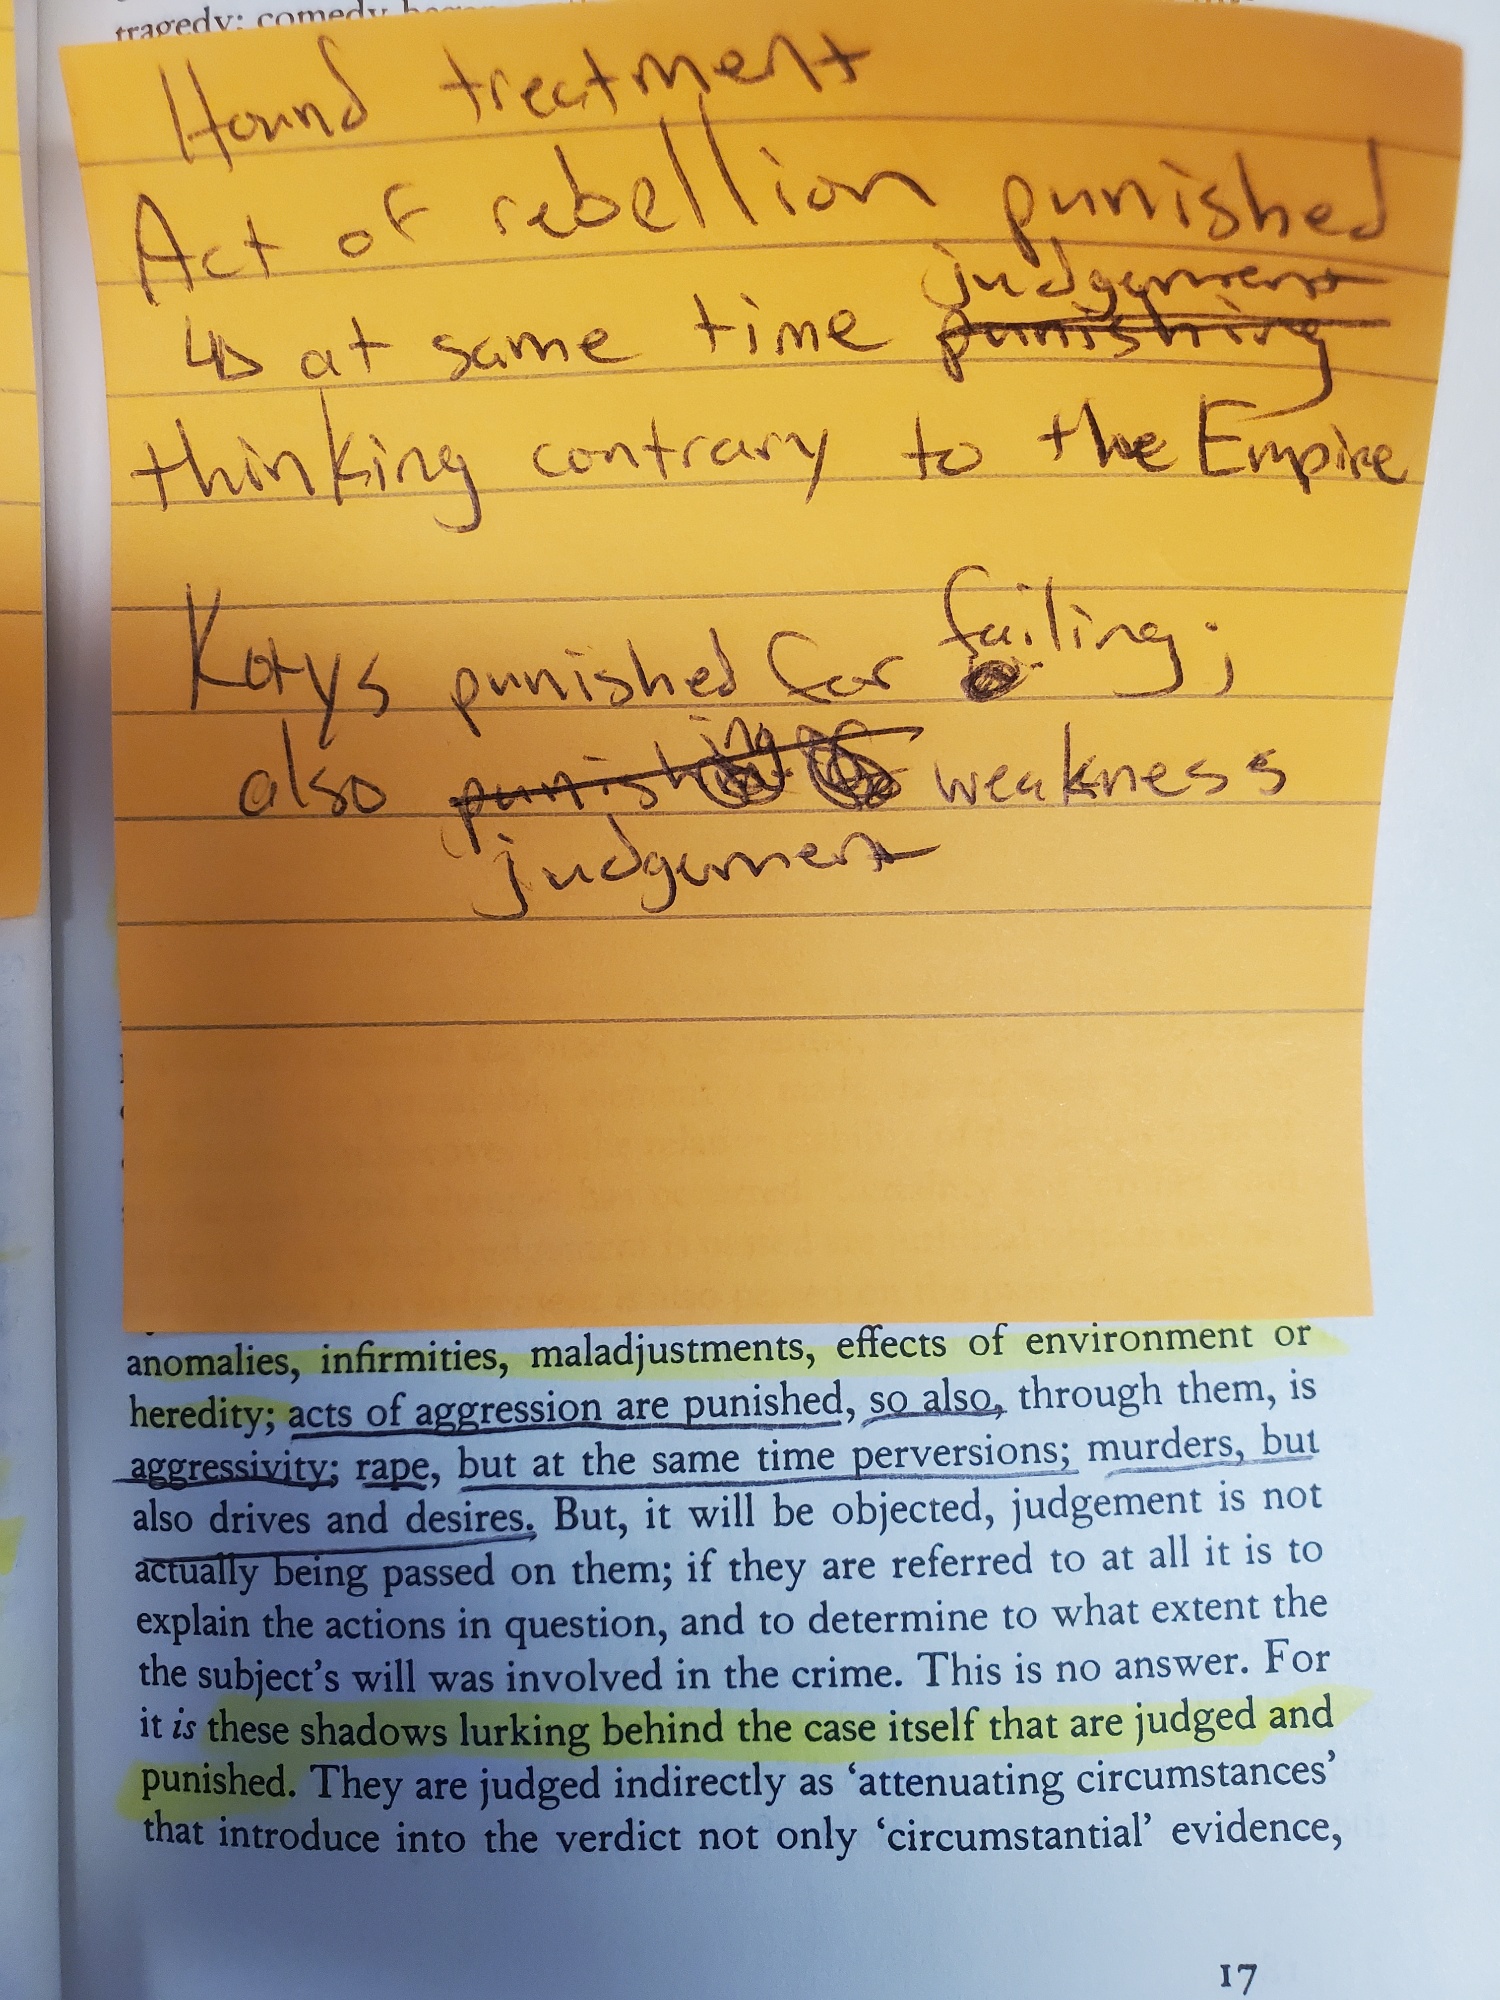 tragedy; comedy
Hound treatment
Act of rebellion punished
judgement
↳ at same time punishing
thinking contrary to the Empire
Katys punished for failing;
also punishing weakness
judgement
anomalies, infirmities, maladjustments, effects of environment or
heredity; acts of aggression are punished, so also, through them, is
aggressivity; rape, but at the same time perversions; murders, but
also drives and desires. But, it will be objected, judgement is not
actually being passed on them; if they are referred to at all it is to
explain the actions in question, and to determine to what extent the
the subject's will was involved in the crime. This is no answer. For
it is these shadows lurking behind the case itself that are judged and
punished. They are judged indirectly as ‘attenuating circumstances’
that introduce into the verdict not only ‘circumstantial’ evidence,
17